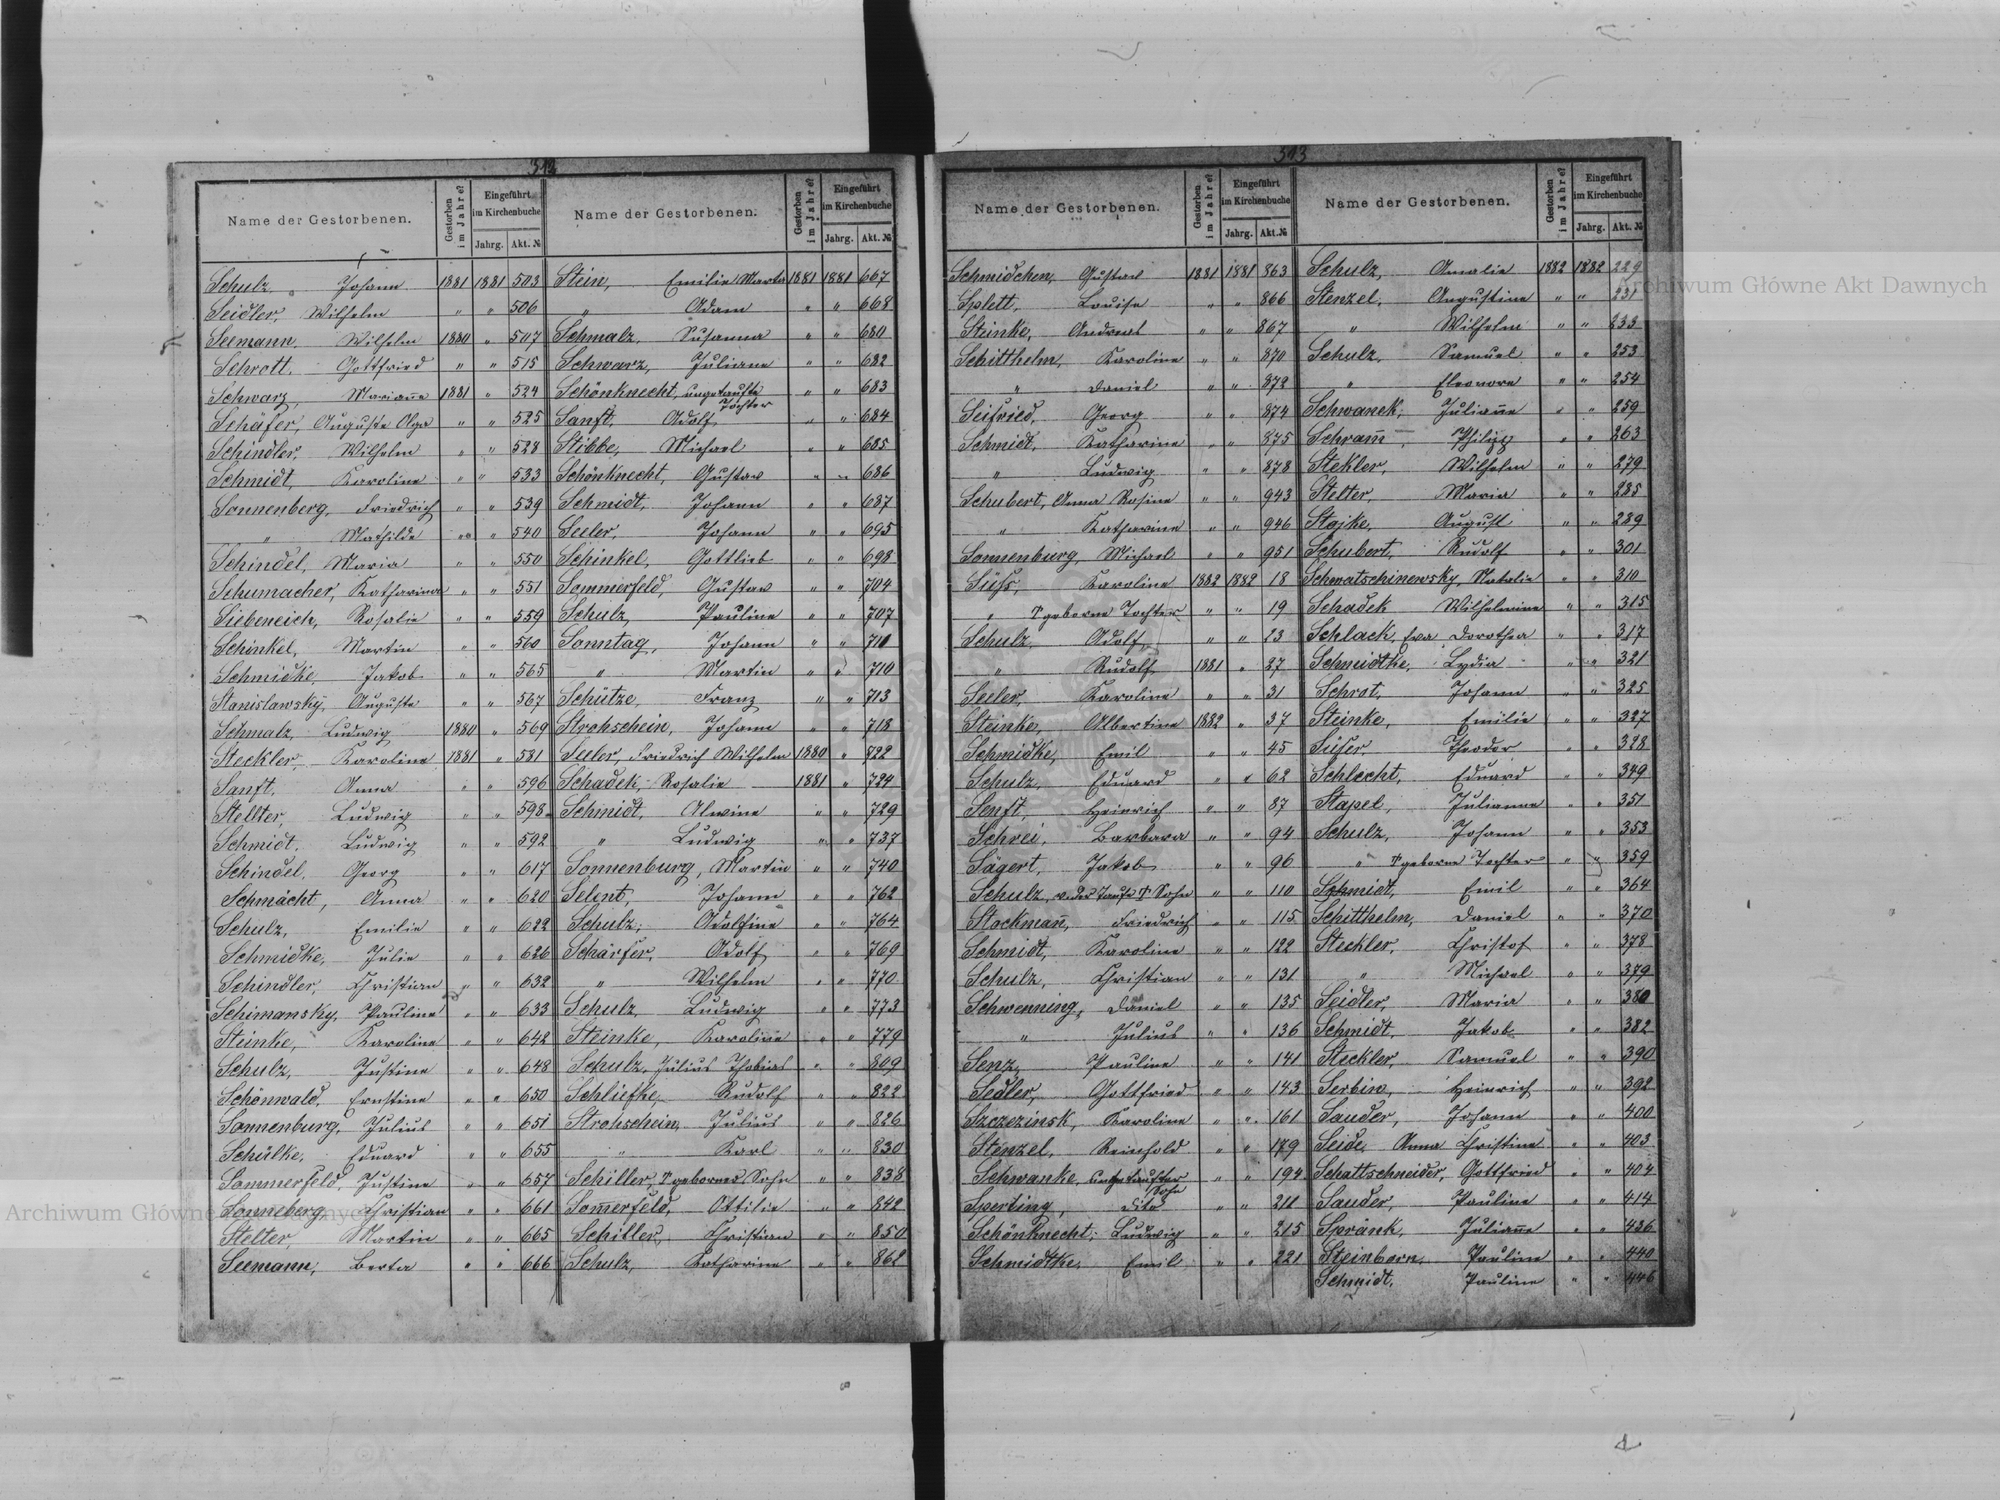 512
Name der Gestorbenen. Gestorben im Jahre? Eingeführt im Kirchenbuche Jahrg. Akt. №
Schulz, Johann 1881 1881 503
Seidler, Wilhelm " " 506
Seemann, Wilhelm 1880 " 507
Schrott, Gottfried " " 515
Schwarz, Mariaṅe 1881 " 524
Schäfer, Auguste Olga " " 525
Schindler, Wilhelm " " 528
Schmidt, Karoline " " 533
Sonnenberg, Friedrich " " 539
" Mathilde " " 540
Schindel, Maria " " 550
Schumacher, Katharina " " 551
Siebeneich, Rosalie " " 559
Schinkel, Martin " " 560
Schmidke, Jakob " " 565
Stanislawsky, Auguste " " 567
Schmalz, Ludwig 1880 " 569
Steckler, Karoline 1881 " 581
Sanft, Anna " " 596
Stellter, Ludwig " " 598
Schmidt, Ludwig " " 592
Schindel, Georg " " 617
Schmächt, Anna " " 620
Schulz, Emilie " " 622
Schmidke, Julie " " 626
Schindler, Christian " " 632
Schimansky, Pauline " " 633
Steinke, Karoline " " 642
Schulz, Justine " " 648
Schönwald, Ernstine " " 650
Sonnenburg, Julius " " 651
Schülke, Eduard " " 655
Sommerfeld, Justine " " 657
Sonneberg, Christian " " 661
Stelter, Martin " " 665
Seemann, Berta " " 666
Name der Gestorbenen. Gestorben im Jahre? Eingeführt im Kirchenbuche Jahrg. Akt. №
Stein, Emilie Marta 1881 1881 667
" Adam " " 668
Schmalz, Susanna " " 680
Schwarz, Juliane " " 682
Schönknecht, ungetaufte Tochter " " 683
Sanft, Adolf " " 684
Stibbe, Michael " " 685
Schönknecht, Gustav " " 686
Schmidt, Johann " " 687
Seeler, Johann " " 695
Schinkel, Gottlieb " " 698
Sommerfeld, Gustav " " 704
Schulz, Pauline " " 707
Sonntag, Johann " " 711
" Martin " " 710
Schütze, Franz " " 713
Strohschein, Johann " " 718
Seeler, Friedrich Wilhelm 1880 " 722
Schadek, Rosalie 1881 " 724
Schmidt, Alwine " " 729
" Ludwig " " 737
Sonnenburg, Martin " " 740
Selent, Johann " " 762
Schulz, Adolfine " " 764
Schärfer, Adolf " " 769
" Wilhelm " " 770
Schulz, Ludwig " " 773
Steinke, Karoline " " 779
Schulz, Julius Thobias " " 809
Schliefke, Rudolf " " 822
Strohschein, Julius " " 826
" Karl " " 830
Schiller, †gebornes Sohn " " 838
Som̅erfeld, Ottilie " " 842
Schiller, Christian " " 850
Schulz, Katharine " " 861
513
Name der Gestorbenen. Gestorben im Jahre? Eingeführt im Kirchenbuche Jahrg. Akt. №
Schmidchen, Gustav 1881 1881 863
Splett, Louise " " 866
Steinke, Andreas " " 867
Schitthelm, Karoline " " 870
" Daniel " " 872
Seifried, Georg " " 874
Schmidt, Katharine " " 875
" Ludwig " " 878
Schubert, Anna Rosine " " 943
" Katharine " " 946
Sonnenburg, Michael " " 951
Süss, Karoline 1882 1882 18
" †geborne Tochter " " 19
Schulz, Adolf " " 23
" Rudolf 1881 " 27
Seeler, Karoline " " 31
Steinke, Albertine 1882 " 37
Schmidke, Emil " " 45
Schulz, Eduard " " 62
Senft, Heinrich " " 87
Schrei, Barbara " " 94
Sägert, Jakob " " 96
Schulz, v. der Taufe † Sohn " " 110
Stockmaṅ, Friedrich " " 115
Schmidt, Karoline " " 122
Schulz, Christian " " 131
Schwenning, Daniel " " 135
" Julius " " 136
Senz, Pauline " " 141
Sedler, Gottfried " " 143
Szczezinsk, Karoline " " 161
Stenzel, Reinhold " " 179
Schwanke, ungetaufter Sohn 194
Sperbing, dito " " 211
Schönknecht, Ludwig " " 215
Schmidtke, Emil " " 221
Name der Gestorbenen. Gestorben im Jahre? Eingeführt im Kirchenbuche Jahrg. Akt. №
Schulz, Amalie 1882 1882 229
Stenzel, Augustine " " 231
" Wilhelm " " 233
Schulz, Samuel " " 253
" Eleonore " " 254
Schwanek, Juliaṅe " " 259
Schram̅, Philipp " " 263
Stekler, Wilhelm " " 279
Stelter, Maria " " 285
Stajke, August " " 289
Schubert, Rudolf " " 301
Schwatschinewsky, Natalie " " 310
Schadek Wilhelmine " " 315
Schlack, Eva Dorothea " " 317
Schmidtke, Lydia " " 321
Schrot, Johann " " 325
Steinke, Emilie " " 327
Süßer, Theodor " " 328
Schlecht, Eduard " " 349
Stapel, Julianna " " 351
Schulz, Johann " " 353
" †geborne Tochter " " 359
Schmidt, Emil " " 364
Schitthelm, Daniel " " 370
Steckler, Christof " " 378
" Michael " " 379
Seidler, Maria " " 380
Schmidt, Jakob " " 382
Steckler, Samuel " " 390
Serbin, Heinrich " " 392
Sauder, Johann " " 400
Seide, Anna Christine " " 403
Schattschneider, Gottfried " " 404
Sauder, Pauline " " 414
Spränk, Juliaṅe " " 436
Steinborn, Pauline " " 440
Schmidt, Pauline " " 446
Archiwum Główne Akt Dawnych
Archiwum Główne Akt Dawnych